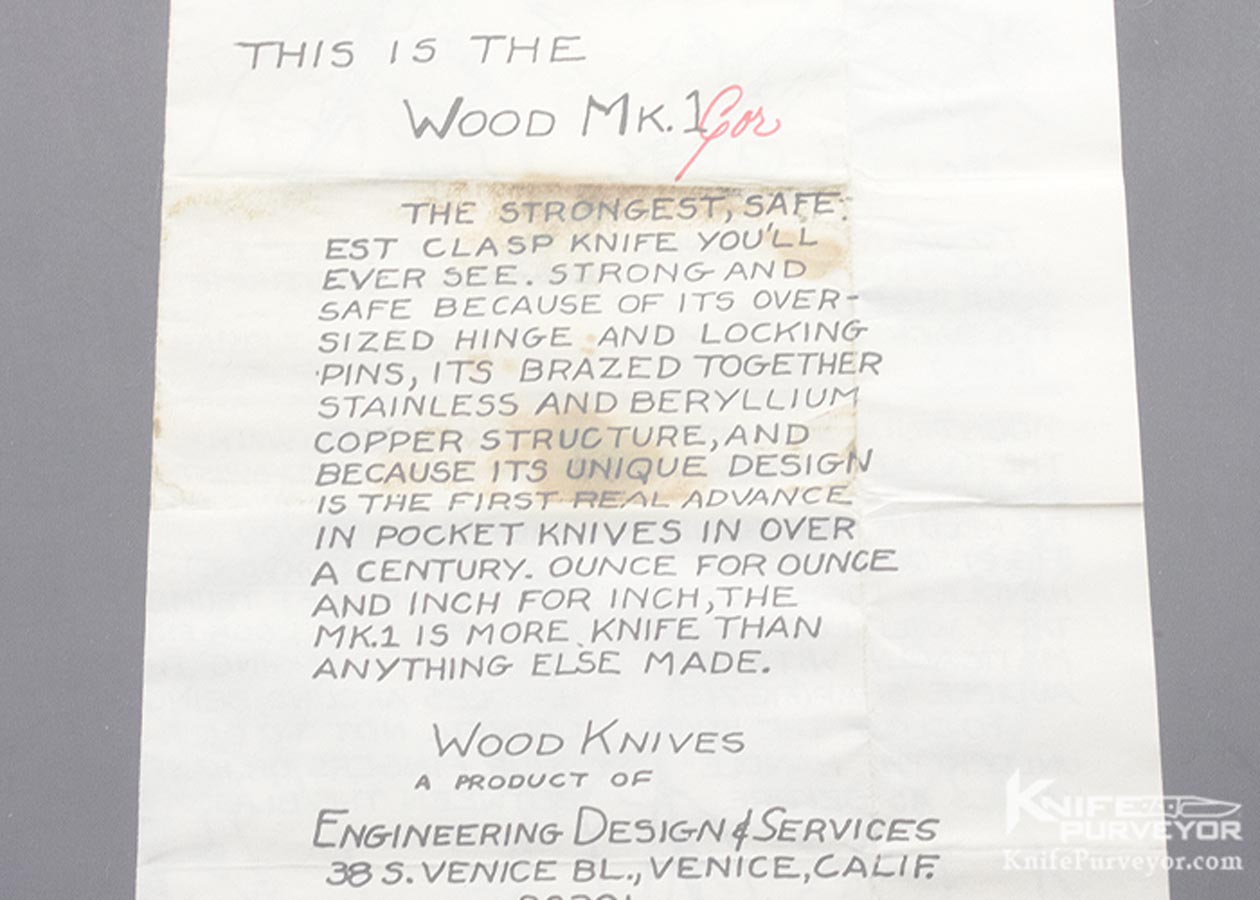 THIS IS THE
WOOD MK.1 Cor
THE STRONGEST, SAFE-
EST CLASP KNIFE YOU'LL
EVER SEE. STRONG AND
SAFE BECAUSE OF ITS OVER-
SIZED HINGE AND LOCKING
PINS, ITS BRAZED TOGETHER
STAINLESS AND BERYLLIUM
COPPER STRUCTURE, AND
BECAUSE ITS UNIQUE DESIGN
IS THE FIRST REAL ADVANCE
IN POCKET KNIVES IN OVER
A CENTURY. OUNCE FOR OUNCE
AND INCH FOR INCH, THE
MK.1 IS MORE KNIFE THAN
ANYTHING ELSE MADE.
WOOD KNIVES
A PRODUCT OF
ENGINEERING DESIGN & SERVICES
38 S. VENICE BL., VENICE, CALIF.
KNIFE
PURVEYOR
KnifePurveyor.com